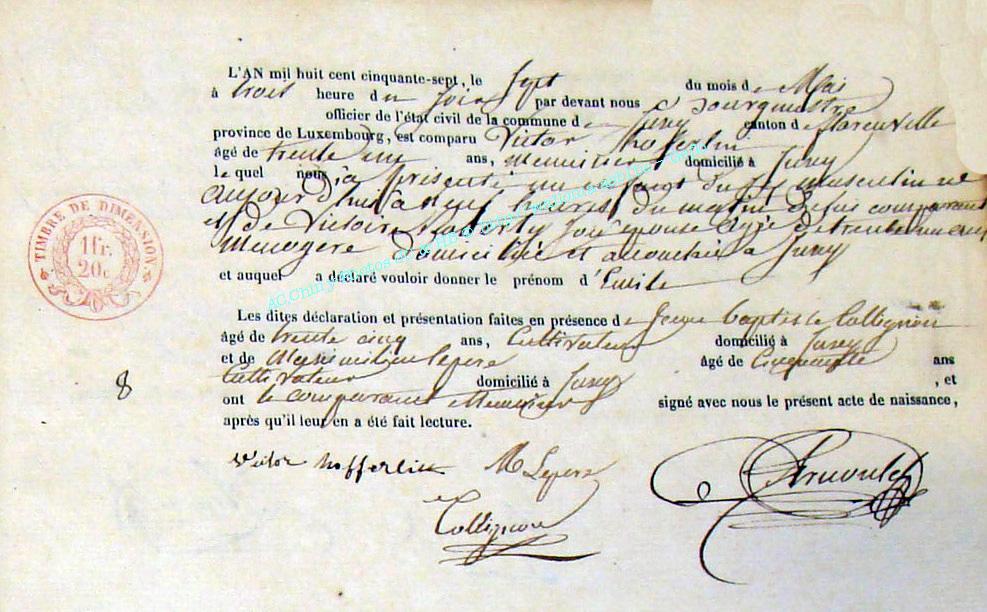 L'AN mil huit cent cinquante-sept, le sept du mois de Mai
à trois heure du soir par devant nous Bourgmestre
officier de l'état civil de la commune de Jusey canton de Florenville
province de Luxembourg, est comparu Victor Hofferlin
âgé de trente un ans, Meunier domicilié à Jusey
le quel nous a présenté un enfant du sexe masculin né
aujourd'hui à neuf heures du matin de lui comparant
et de Victoire son épouse âgée de trente un ans
Menagere domiciliée et à Jusey
et auquel a déclaré vouloir donner le prénom d'Emile
Les dites déclaration et présentation faites en présence de Jean baptiste Collignon
âgé de trente cinq ans, Cultivateur domicilié à Jusey
et de Maximilien Lepere âgé de Cinquante ans
Cultivateur domicilié à Jusey , et
ont le comparant et temoins signé avec nous le présent acte de naissance,
après qu'il leur en a été fait lecture.
TIMBRE DE DIMENSION
1 fr.
20 c
8
Victor hofferlin M Lepere
Collignon
AC Chiny Photos